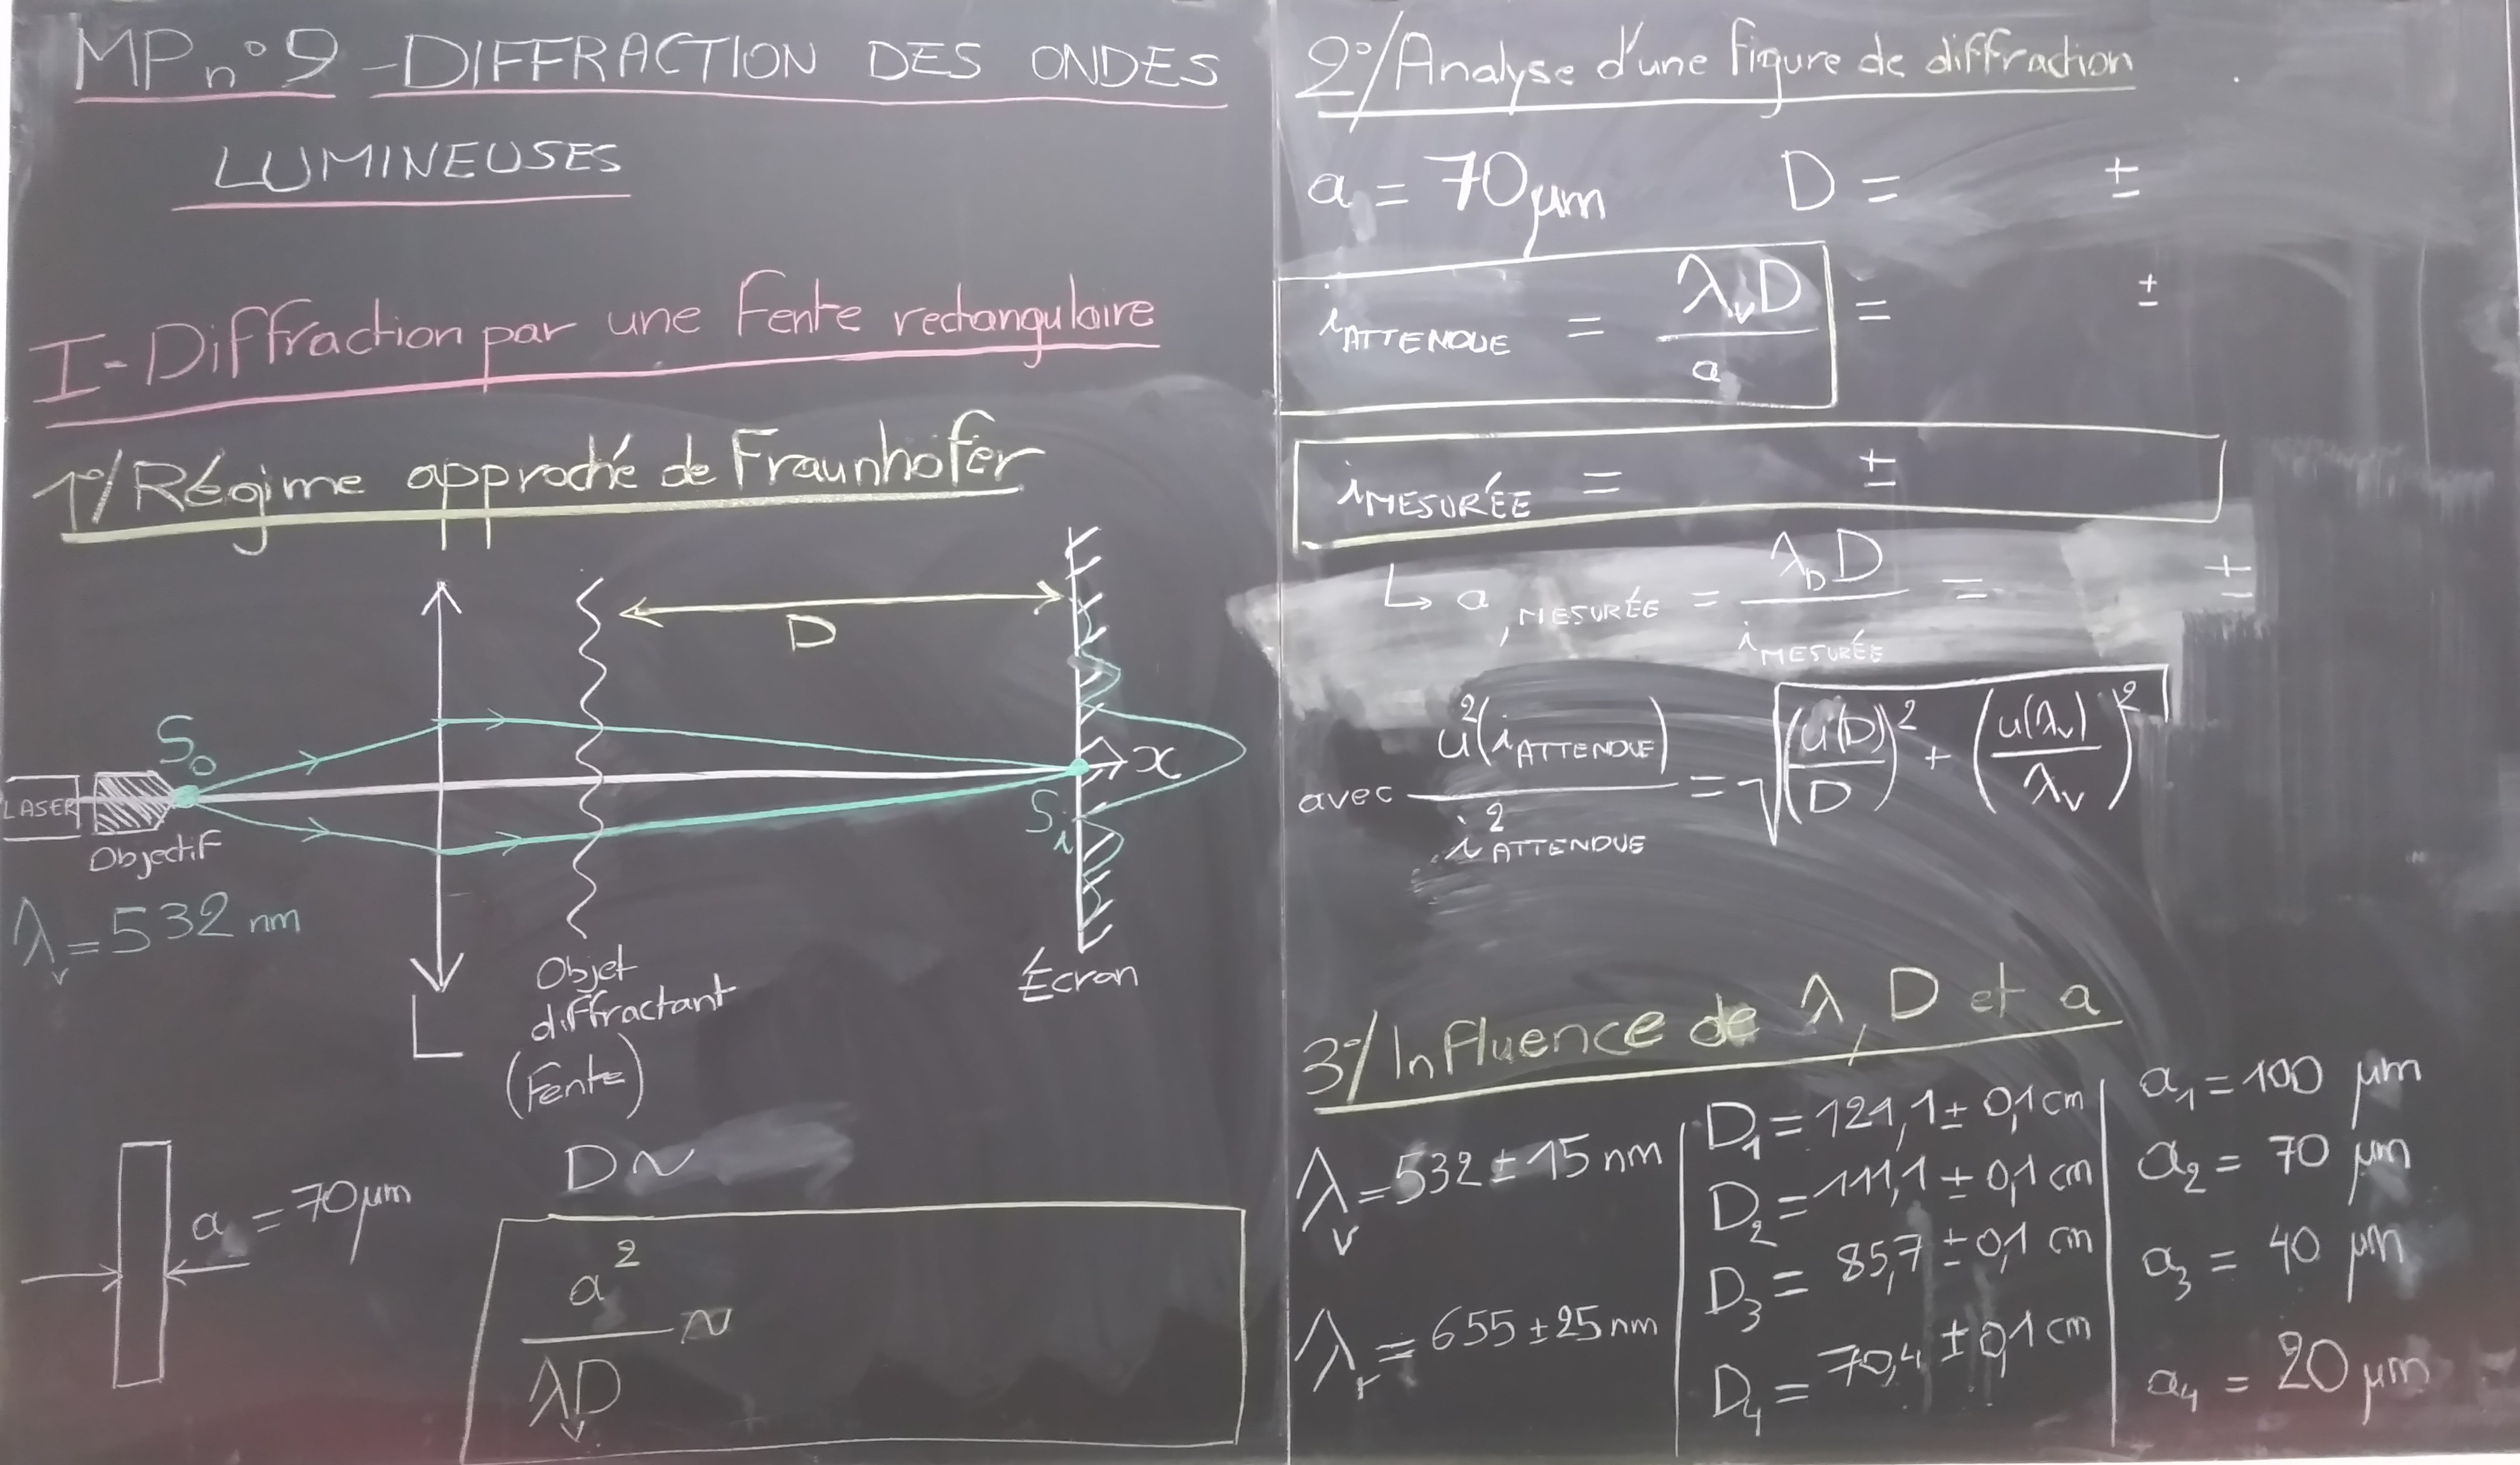 MP n°9 - DIFFRACTION DES ONDES
LUMINEUSES
I - Diffraction par une fente rectangulaire
1°/ Régime approché de Fraunhofer
D
S₀
x
LASER
Sᵢ
Objectif
λᵥ = 532 nm
L
Objet
diffractant
(Fente)
Écran
a = 70 µm
D ~
a² / λᵥD ~
2°/ Analyse d'une figure de diffraction
a = 70 µm D = ±
i ATTENDUE = λᵥD / a = ±
i MESURÉE = ±
↳ a, MESURÉE = λ_D D / i MESURÉE = ±
avec u²(i ATTENDUE) / i² ATTENDUE = √((u(D)/D)² + (u(λᵥ)/λᵥ)²)
3°/ Influence de λ, D et a
λᵥ = 532 ± 15 nm
λᵣ = 655 ± 25 nm
D₁ = 121,1 ± 0,1 cm
D₂ = 111,1 ± 0,1 cm
D₃ = 85,7 ± 0,1 cm
D₄ = 70,4 ± 0,1 cm
a₁ = 100 µm
a₂ = 70 µm
a₃ = 40 µm
a₄ = 20 µm